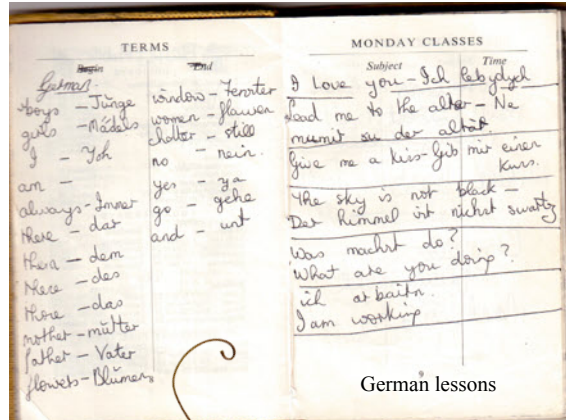 TERMS
Begin End
German
boys – Jünge
girls – Mádels
I – Ich
am –
always – Immer
there – dar
there – dem
there – des
there – das
mother – mütter
father – Vater
flowers – Blümen
window – Fenster
women – flauen
still
no – nein.
yes – ya
go – gehe
and – unt
MONDAY CLASSES
Subject Time
I Love you – Ich lebydych
Lead me to the alter – Ne
mumit su der altár.
Give me a kiss – Gib mir einen
Kuss.
The sky is not black –
Der himmel ist nichst swartz
Was machst do?
What are you doing?
ich arbaitn.
I am working
9
German lessons